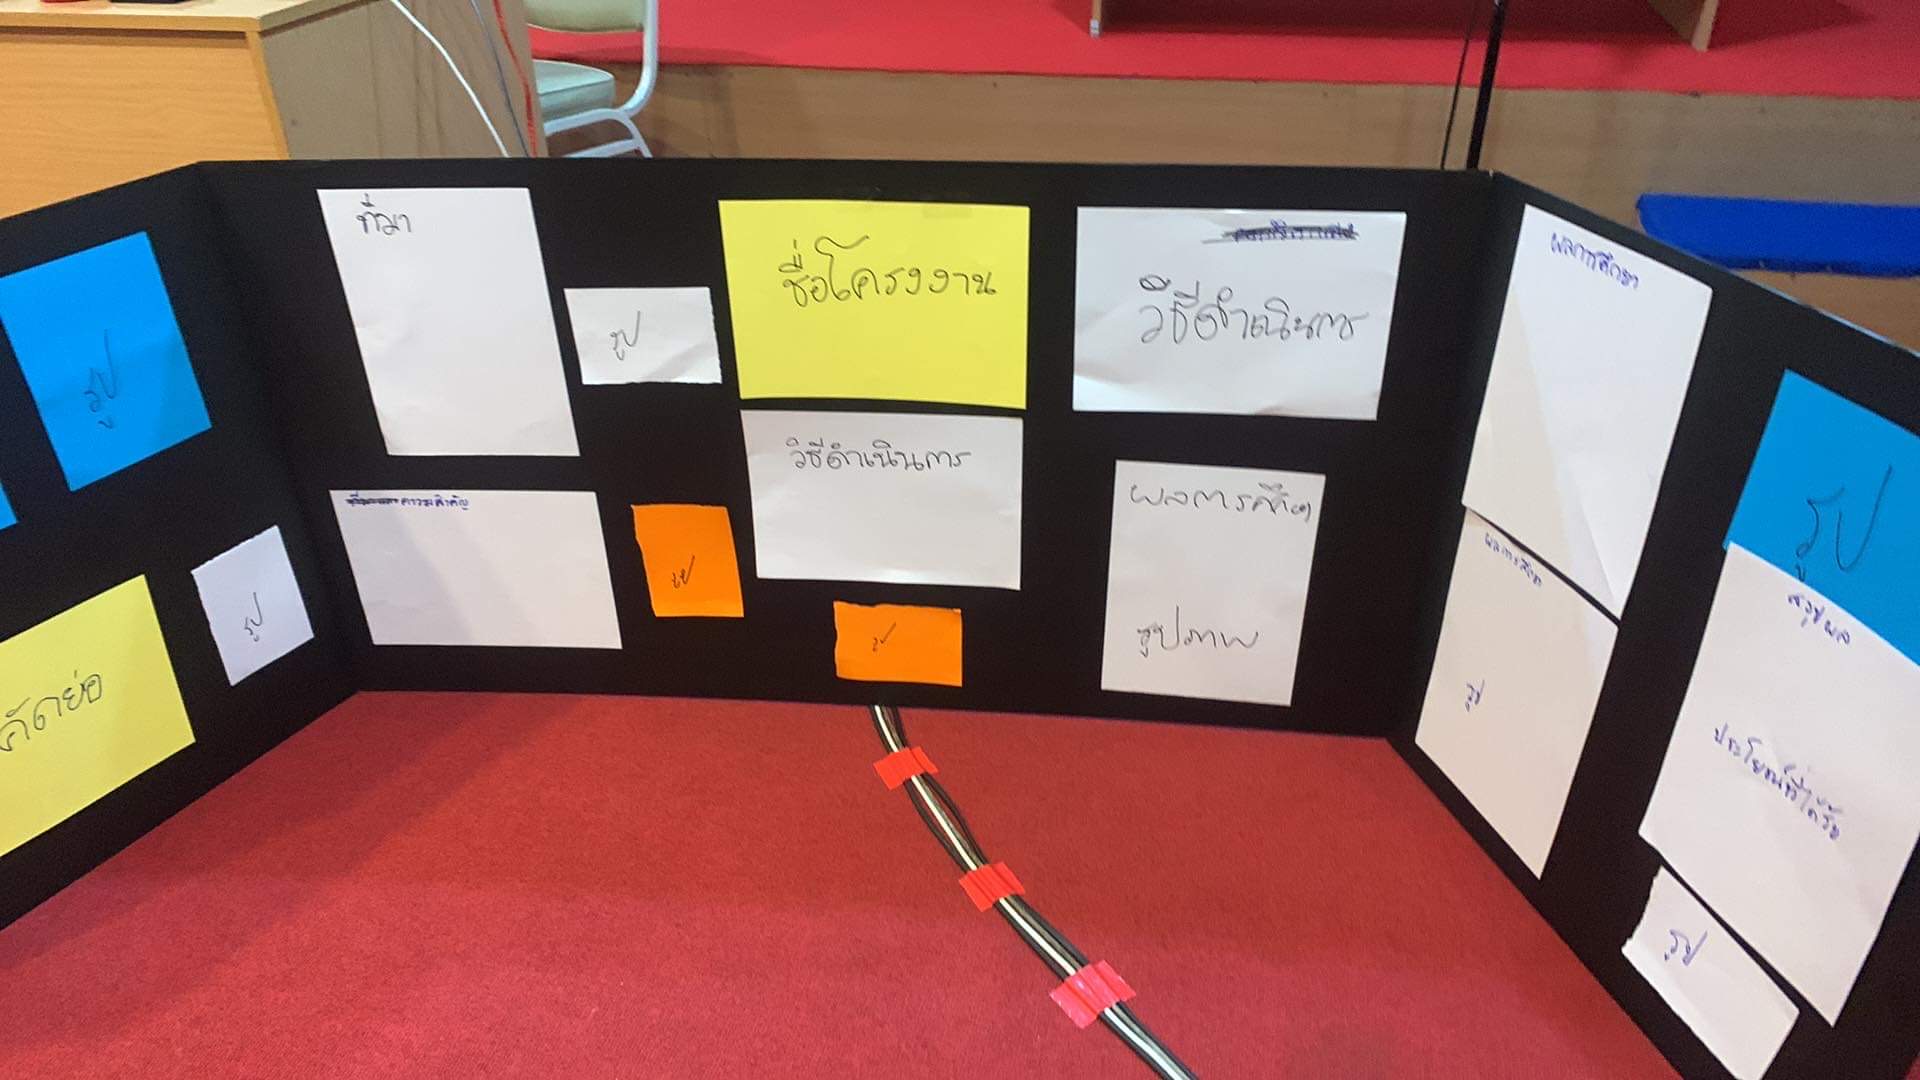 รูป
คัดย่อ
รูป
ที่มา
รูป
ความสำคัญ
รูป
ชื่อโครงงาน
วิธีดำเนินการ
รูป
วิธีดำเนินการ
ผลการศึกษา
รูปภาพ
ผลการศึกษา
ผลการศึกษา
รูป
รูป
สรุปผล
ประโยชน์ที่ได้รับ
รูป